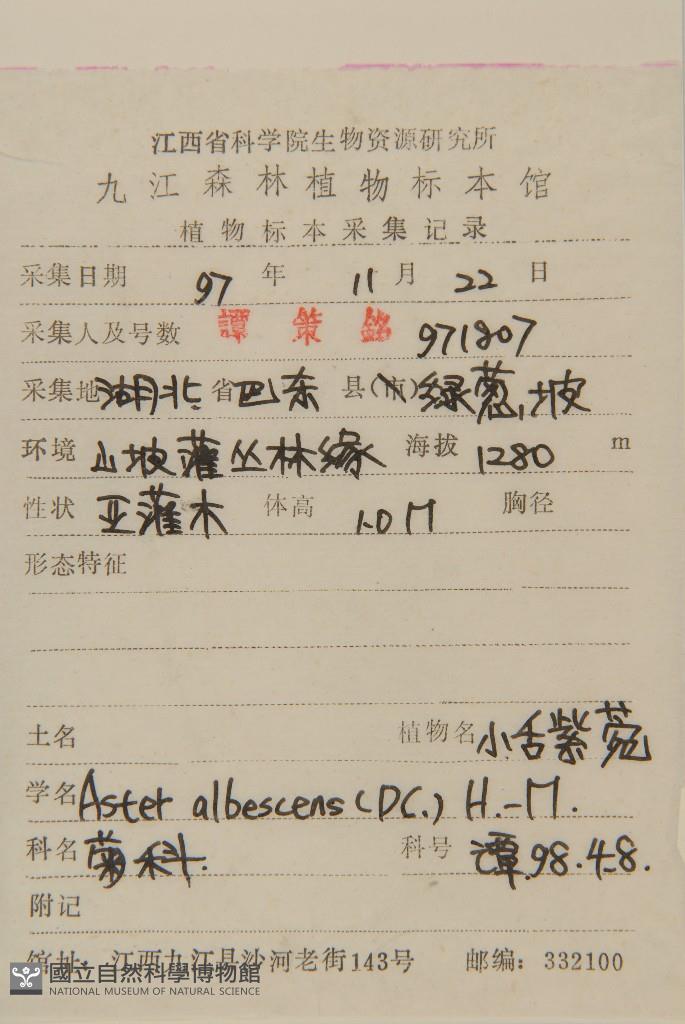 江西省科学院生物资源研究所
九江森林植物标本馆
植物标本采集记录
采集日期 97 年 11 月 22 日
采集人及号数 譚策銘 971807
采集地 湖北 省 巴东 县(市) 绿葱坡
环境 山坡灌丛林缘 海拔 1280 m
性状 亚灌木 体高 1.0 M 胸径
形态特征
土名 植物名 小舌紫菀
学名 Aster albescens (DC.) H.-M.
科名 菊科. 科号 譚.98.4.8.
附记
馆址: 江西九江县沙河老街143号 邮编: 332100
國立自然科學博物館
NATIONAL MUSEUM OF NATURAL SCIENCE